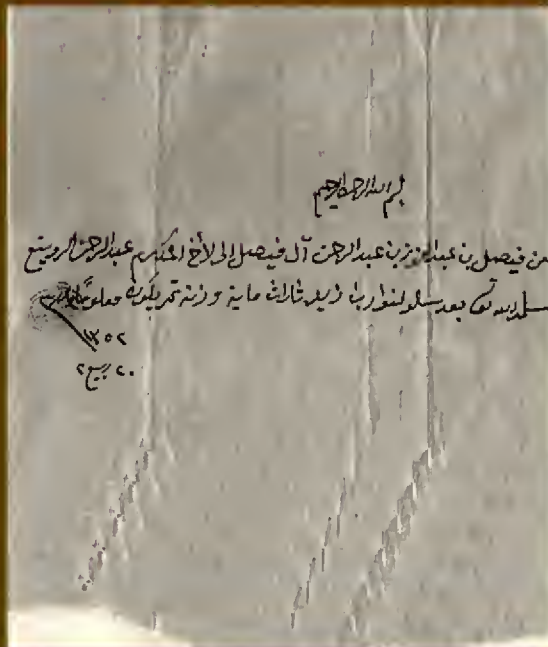 بسم الله الرحمن الرحيم
من فيصل بن عبد العزيز بن عبد الرحمن آل فيصل إلى الأخ المكرم عبد الرحمن الرويتع
سلمه الله تعالى بعد ثلاث ماية وزنة تمر يكون معلوم
١٣٥٢
٢٠ ربيع ٢